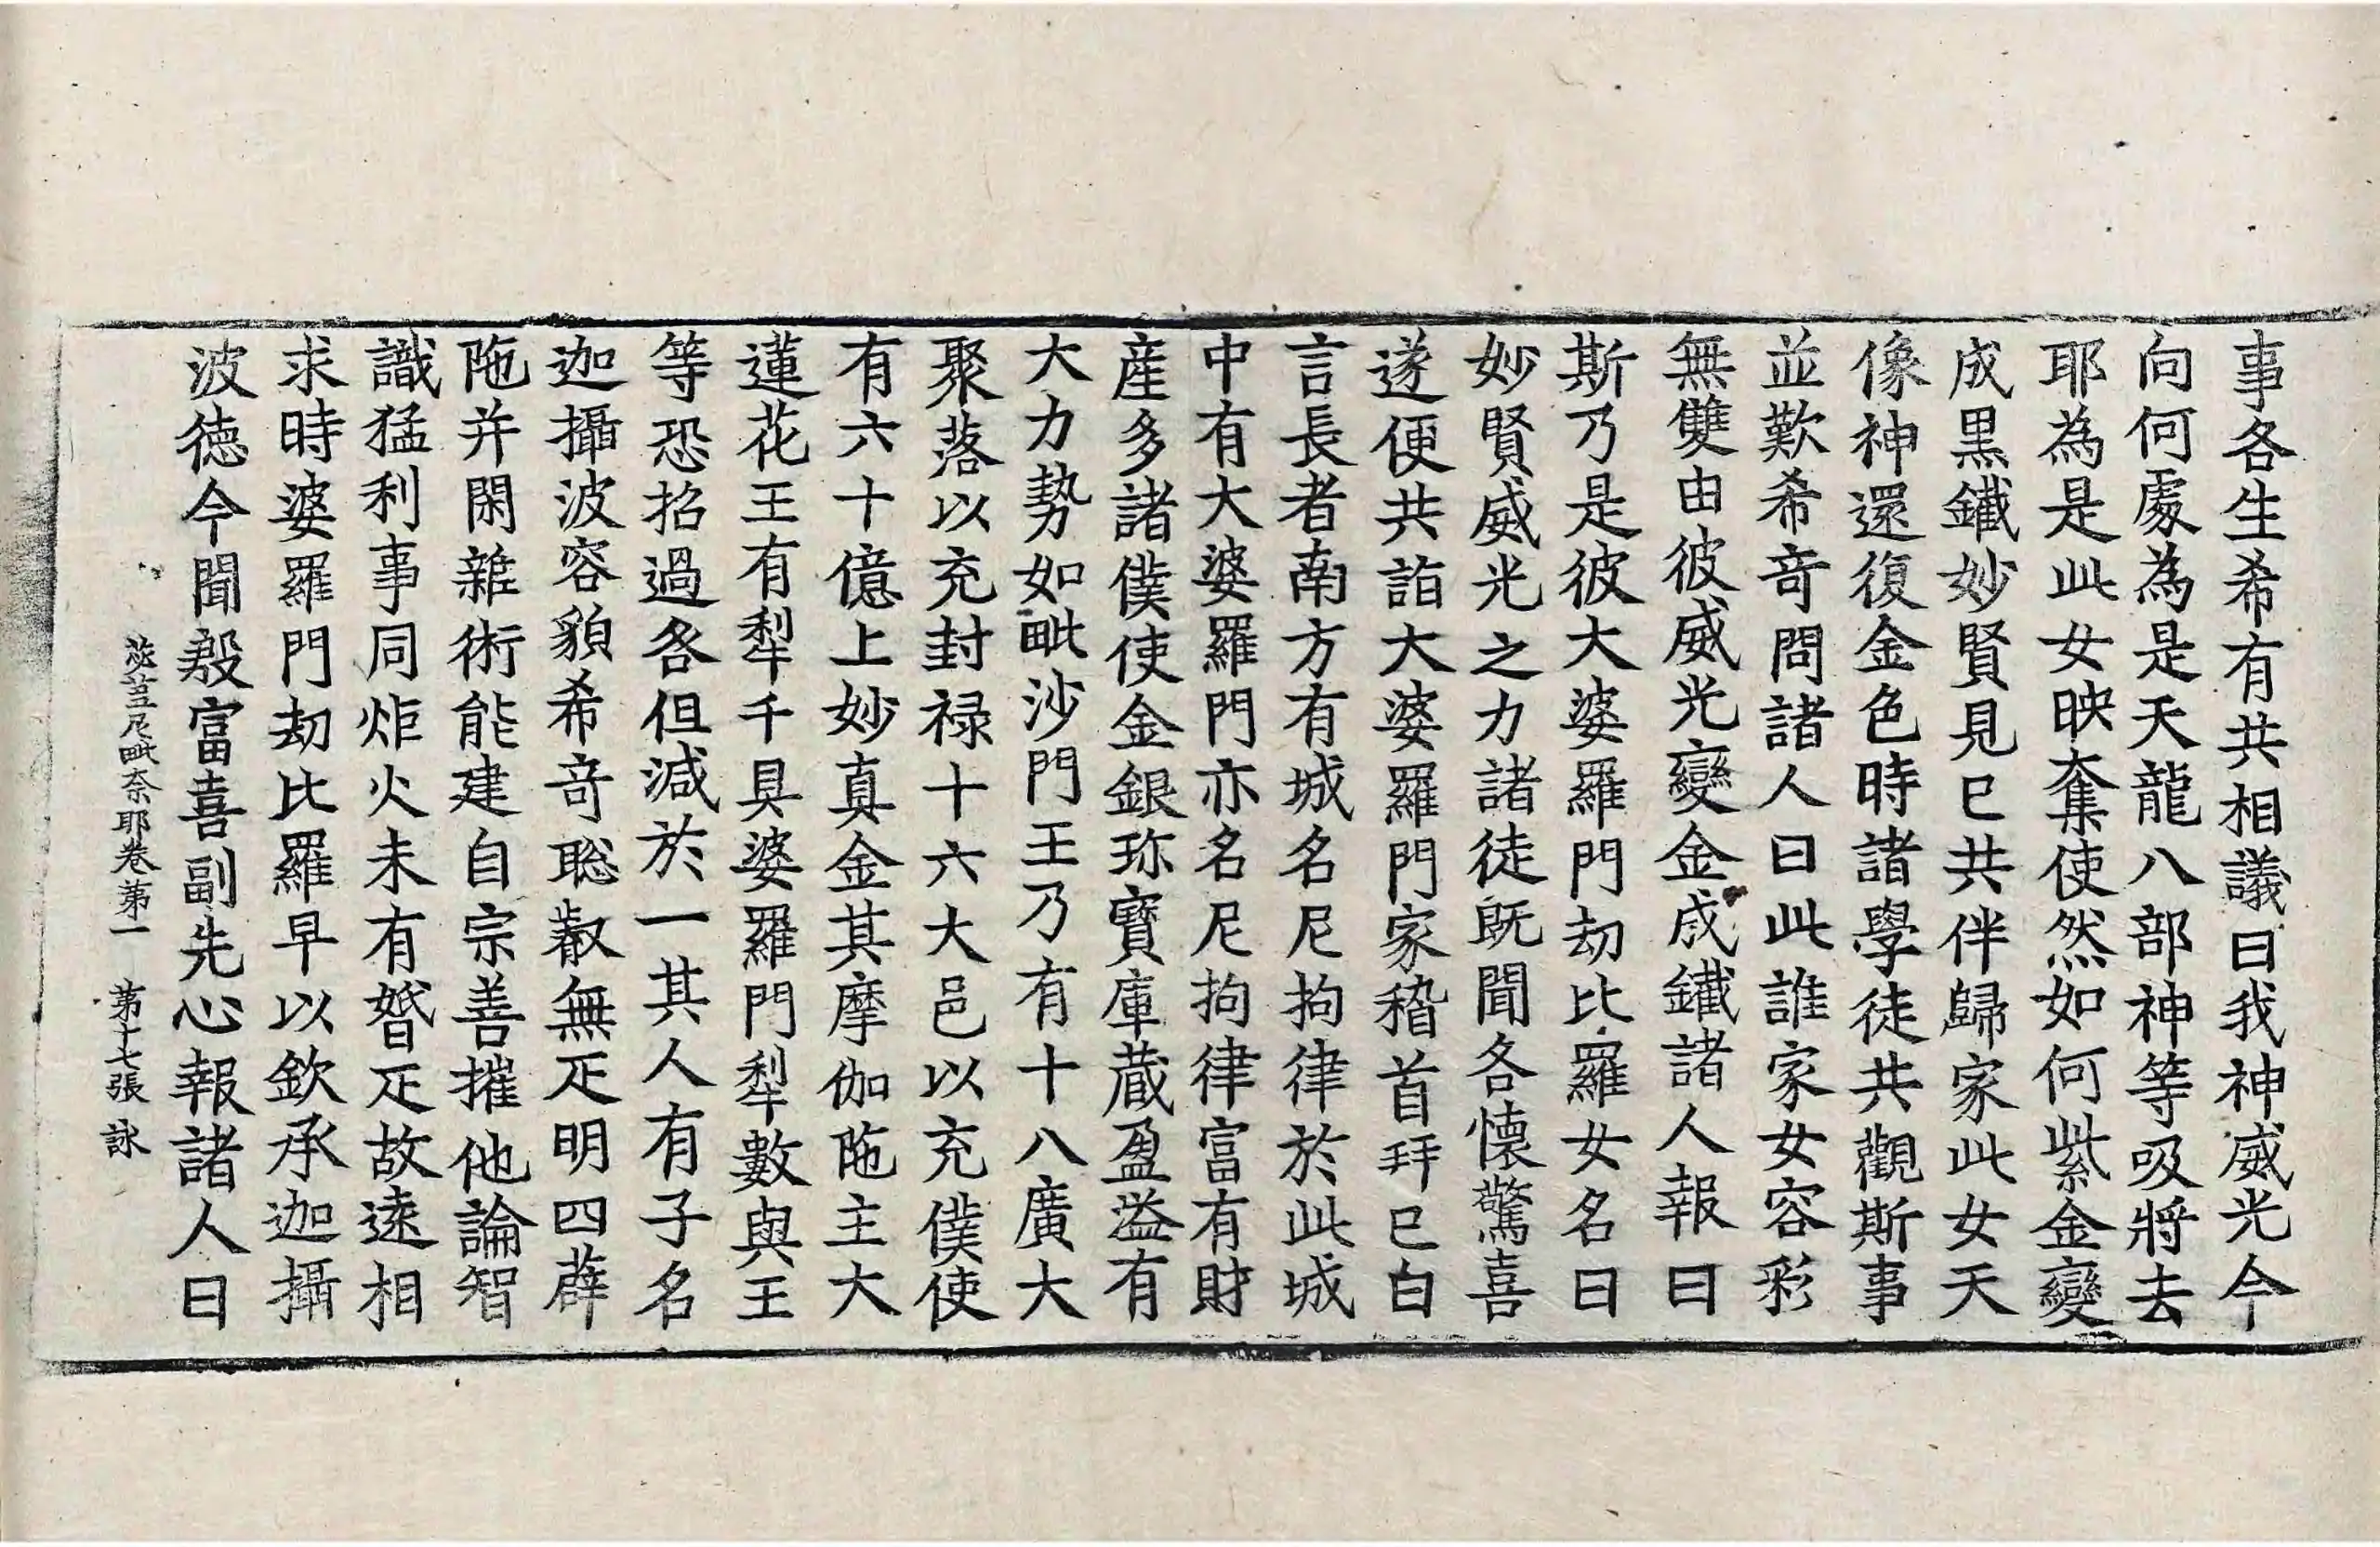 事各生希有共相議曰我神威光今
向何處為是天龍八部神等吸將去
耶為是此女映奪使然如何紫金變
成黑鐵妙賢見已共伴歸家此女天
像神還復金色時諸學徒共觀斯事
並歎希竒問諸人曰此誰家女容彩
無雙由彼威光變金成鐵諸人報曰
斯乃是彼大婆羅門劫比羅女名曰
妙賢威光之力諸徒旣聞各懷驚喜
遂便共詣大婆羅門家稽首拜已白
言長者南方有城名尼拘律於此城
中有大婆羅門亦名尼拘律富有財
産多諸僕使金銀珎寶庫藏盈溢有
大力勢如毗沙門王乃有十八廣大
聚落以充封禄十六大邑以充僕使
有六十億上妙真金其摩伽陁主大
蓮花王有犁千具婆羅門犁數與王
等恐招過咎但減於一其人有子名
迦攝波容貌希竒聡叡無疋明四薜
陁并閑雜術能建自宗善摧他論智
識猛利事同炬火未有婚疋故遠相
求時婆羅門劫比羅早以欽承迦攝
波徳今聞殷富喜副先心報諸人曰
苾芻尼毗奈耶卷第一 第十七張 詠